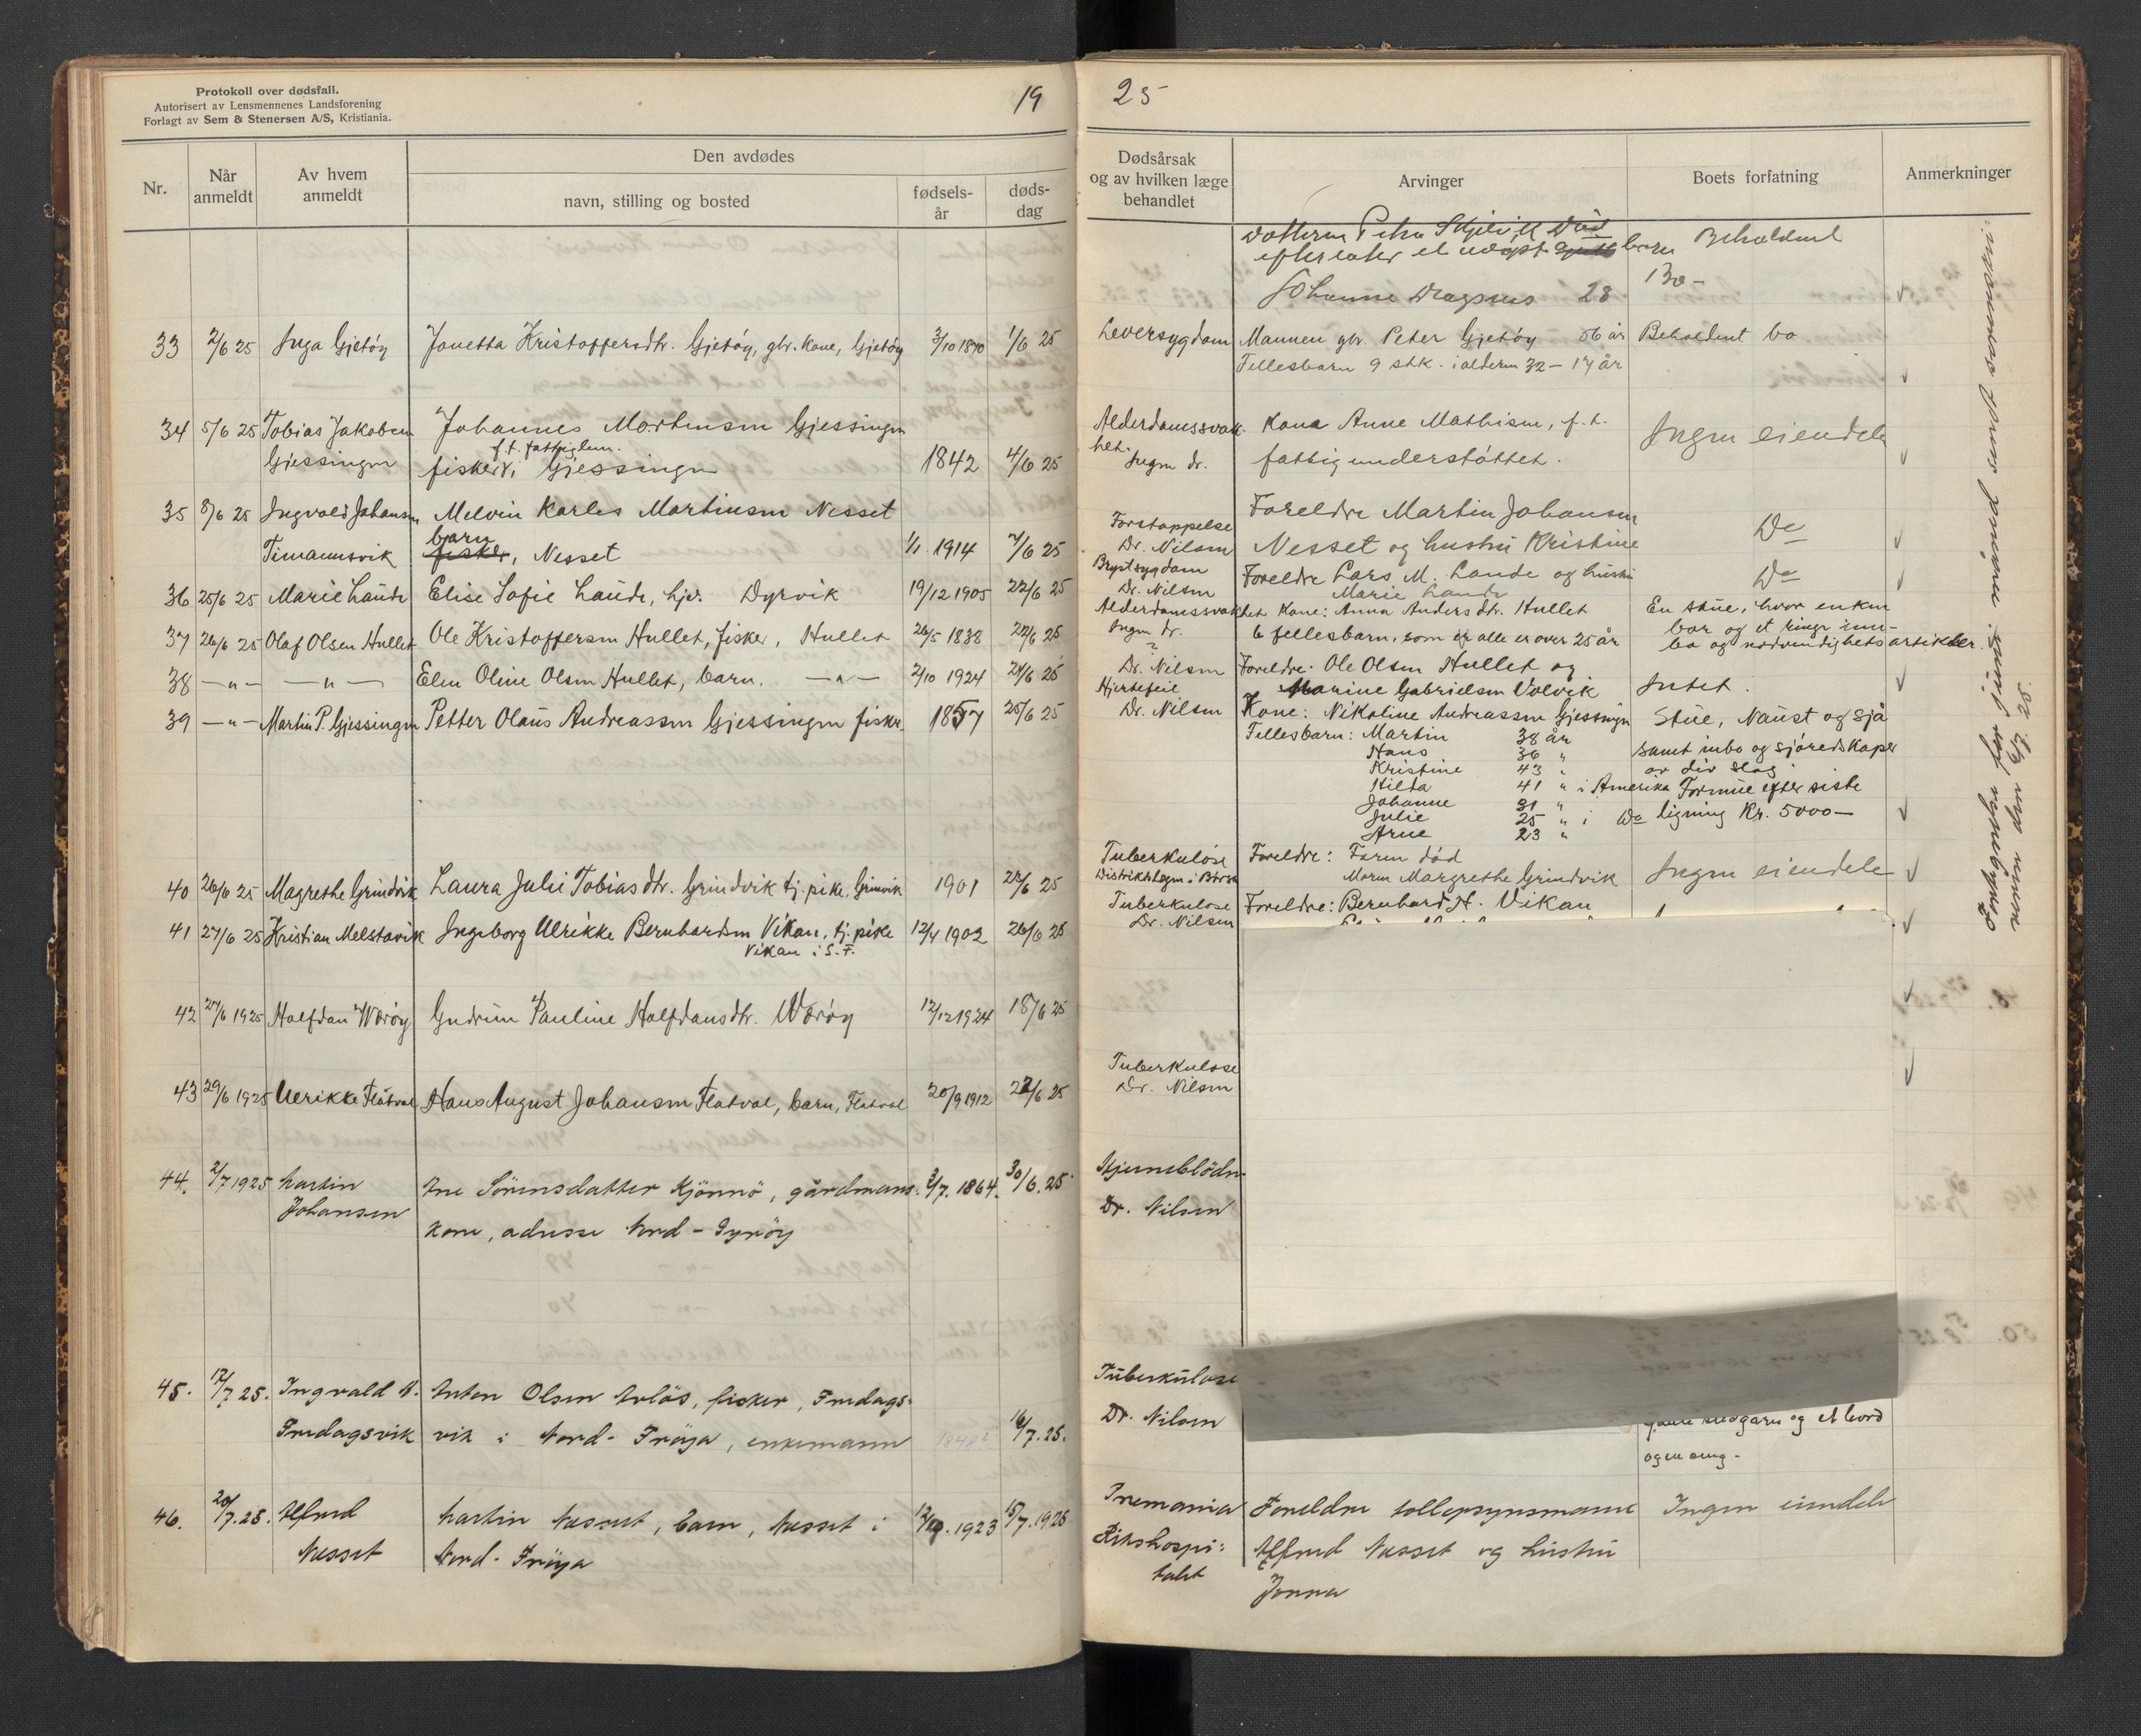 Protokoll over dødsfall.
Autorisert av Lensmennenes Landsforening
Forlagt av Sem & Stenersen A/S, Kristiania.
19
Nr.
Når anmeldt
Av hvem anmeldt
Den avdødes
navn, stilling og bosted
fødsels-år
døds-dag
33 2/6 25 Inga Gjetøy Janetta Kristoffersdtr. Gjetøy, gbr. kone, Gjetøy 3/10 1870 1/6 25
34 5/6 25 Tobias Jakobsen Johannes Mortensen Gjessingen
f.t. fattiglem.
Gjessingen fisker, Gjessingen 1842 4/6 25
35 8/6 25 Ingvald Johansen Melvin Karles Martinsen Nesset
barn
Timannsvik fisker, Nesset 1/1 1914 7/6 25
36 25/6 25 Marie Lande Elise Sofie Lande, hjv. Dyrvik 19/12 1905 22/6 25
37 26/6 25 Olaf Olsen Hullet Ole Kristoffersen Hullet, fisker, Hullet 26/5 1838 22/6 25
38 —"— —"— Elen Oline Olsen Hullet, barn. —"— 2/10 1924 24/6 25
39 —"— Martin P. Gjessingen Petter Olaus Andreassen Gjessingen fisker. 1857 25/6 25
40 26/6 25 Magrethe Grindvik Laura Julie Tobiasdtr. Grindvik tj. pike. Grinvik 1901 23/6 25
41 27/6 25 Kristian Melstavik Ingeborg Ulrikke Bernhardsen Vikan, tj. pike 12/4 1902 26/6 25
Vikan i S.F.
42 27/6 1925 Halfdan Værøy Gudrun Pauline Halfdansdtr. Værøy 12/12 1924 18/6 25
43 29/6 1925 Ulrikke Flatval Hans August Johansen Flatval, barn, Flatval 20/9 1912 22/6 25
44. 2/7 1925 Martin Ane Sørensdatter Kjønnø, gårdmans- 2/7. 1864. 30/6. 25
Johansen kone, adresse Nord-Dyrøy
45. 17/7 25. Ingvald Anton Olsen Arløs, fisker, Fredags-
Fredagsvik vik i Nord-Frøya, enkemann 1848 16/7. 25.
46. 20/7. 25. Alfred Martin Nesset, barn, Nesset i 1923 15/7. 1925
Nesset Nord-Frøya
25
Dødsårsak og av hvilken læge behandlet
Arvinger
Boets forfatning
Anmerkninger
Datteren Petra død
efterlater et uegte barn Beholdent
Johanne Dragsnes 28 Bo-
Leversygdom Mannen gbr. Peter Gjetøy 56 år Beholdent bo
Fellesbarn 9 stk. i alderen 32 – 14 år
Alderdomssvak- Kona Anne Mathisen, f.t. Ingen eiendele
het. Ingen dr. fattigunderstøttet.
Forstoppelse Foreldre Martin Johansen Do
Dr. Nilsen Nesset og hustru Kristine
Brystsygdom Foreldre Lars M. Lande og hustru Do
Dr. Nilsen Marie Lande
Alderdomssvakhet Kone: Anna Andersdtr. Hullet En stue, hvor enken
Ingen dr. 6 fellesbarn, som alle er over 25 år bor og et ringe inn-
bo og nødvendighetsartikler.
?
Dr. Nilsen Foreldre: Ole Olsen Hullet og
Marine Gabrielsen Valvik Intet.
Hjertefeil
Dr. Nilsen Kone: Nikoline Andreassen Gjessingen Stue, Naust og sjå
Fellesbarn: Martin 38 år samt inbo og sjøredskaper
Hans 36 " av div slag
Kristine 43 "
Hilda 41 " i Amerika Formue efter siste
Johanne 31 "
Julie 25 " i Do ligning Kr. 5000—
Arne 23 "
Tuberkulose Foreldre: Faren død
Distriktslegen i Børsa Moren Margrethe Grindvik Ingen eiendele
Tuberkulose Foreldre: Bernhard A. Vikan
Dr. Nilsen
Tuberkulose
Dr. Nilsen
Hjerneblødn.
Dr. Nilsen
Tuberkulose
Dr. Nilsen
og et bord
og en seng-
Foreldre tollopsynsmann Ingen eiendele
Rikshospi-
talet Alfred Nesset og hustru
Jonna
Fortegnelse for juni måned sendt sorenskri-
veren den 6/7. 25.